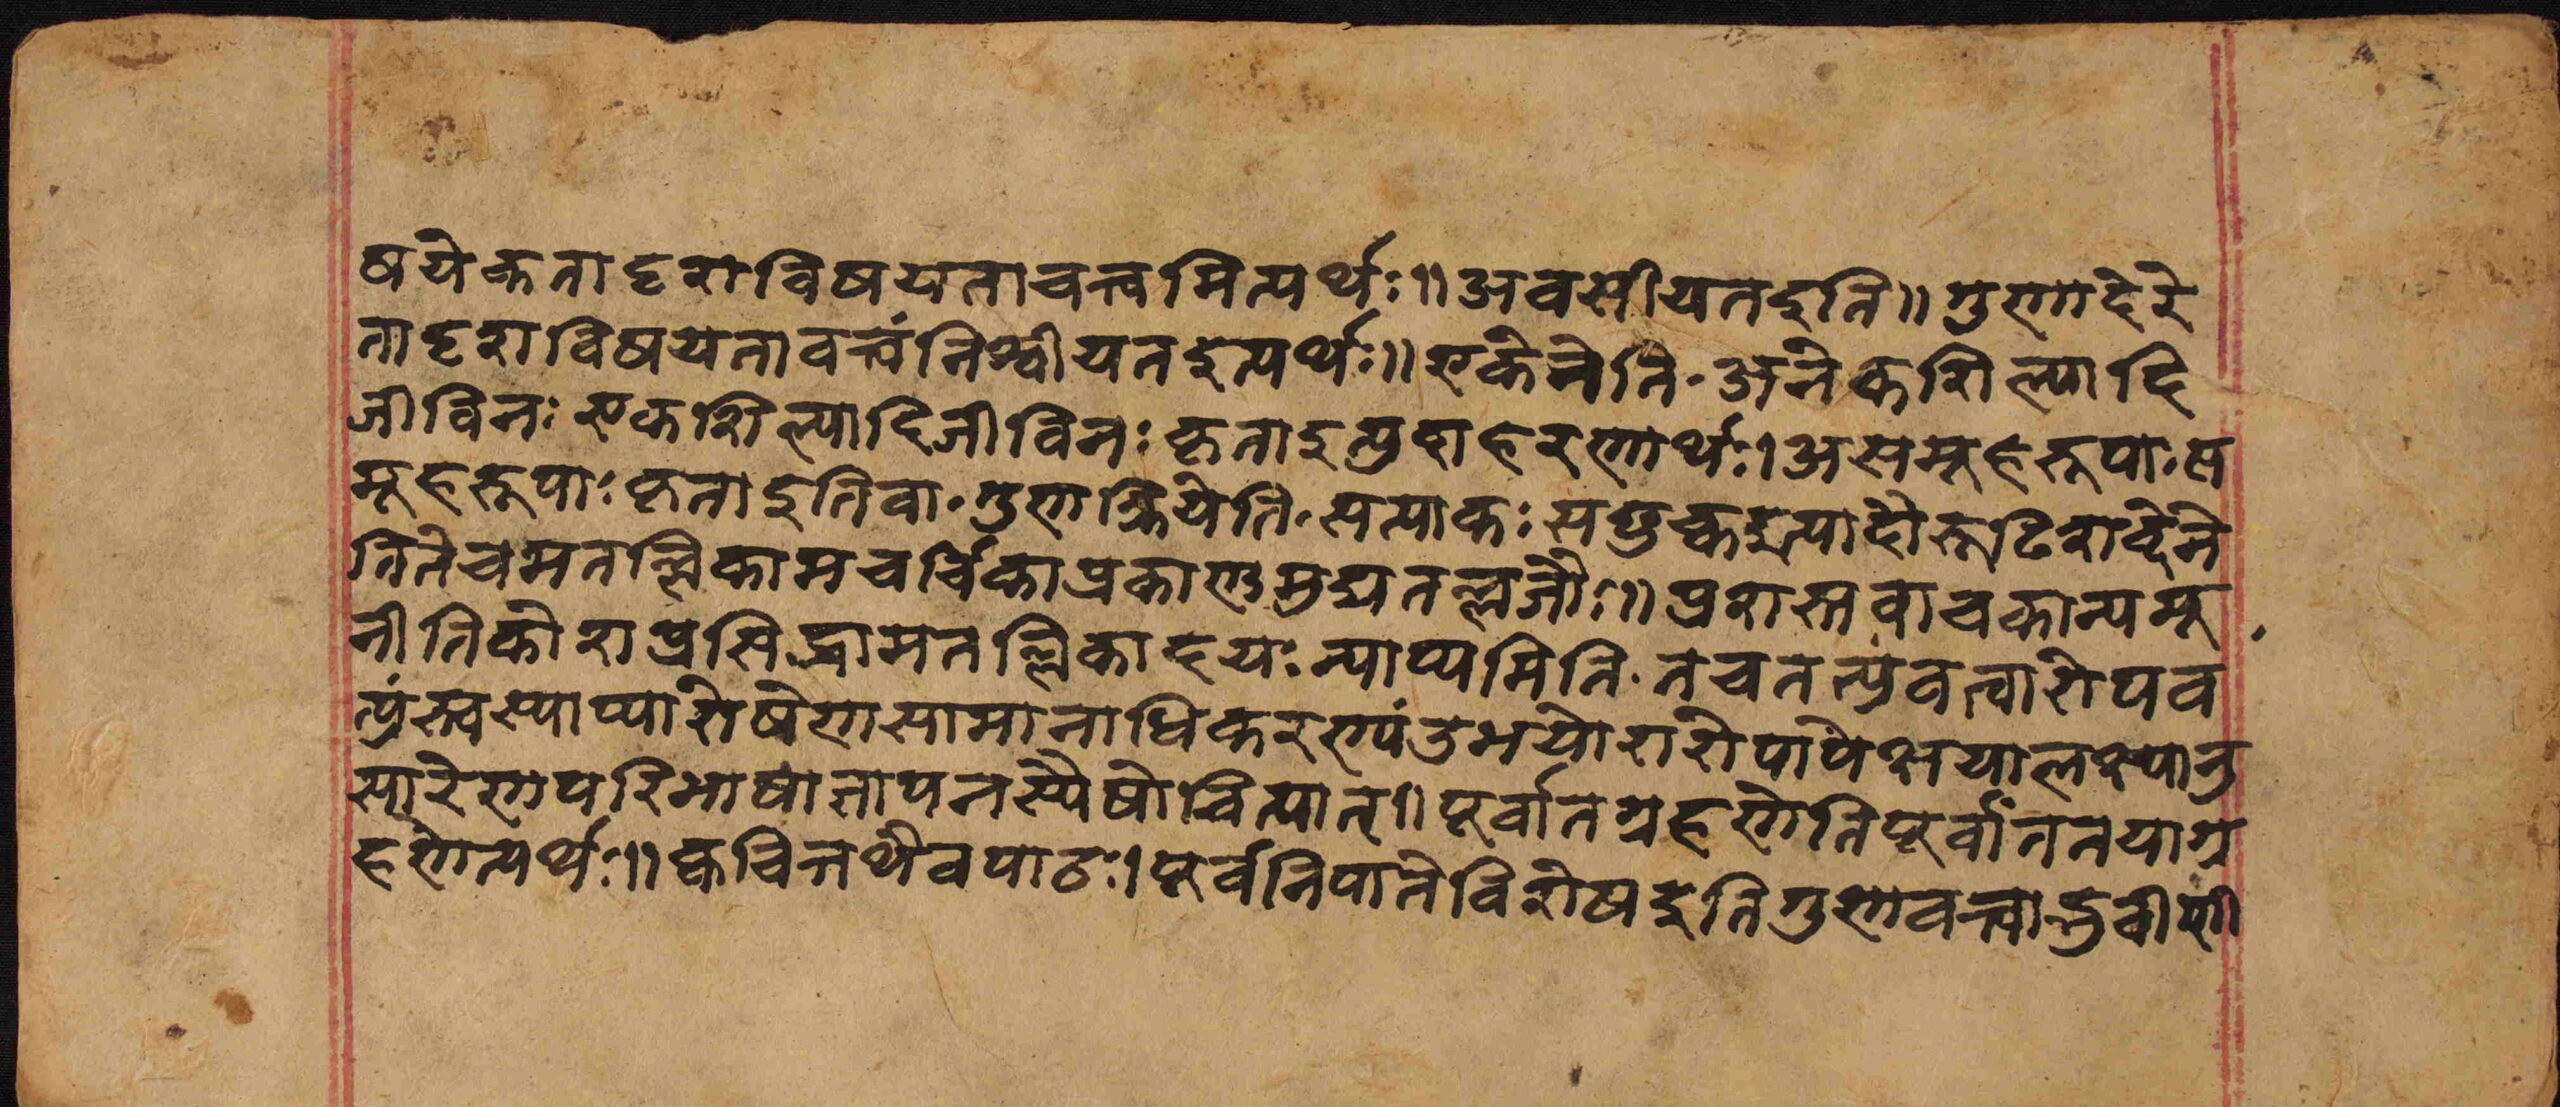 षयेक्ततादृशविषयताचत्त्वमित्यर्थः॥अवसीयतइति॥गुणादेरे
तादृशविषयतावत्त्वंनिश्चीयतइत्यर्थः॥एकेनेति॰अनेकशिल्पादि
जीविनः एकशिल्पादिजीविनः कृताइत्युदाहरणार्थः।असमूहरूपाःस
मूहरूपाः कृताइतिवा॰गुणक्रियेति॰सत्पाकः सधुक्कइत्यादौरूढिशब्देने
तितेचमतल्लिकामचर्चिकाप्रकाण्डमुद्घतल्लजौ॥प्रशस्तवाचकान्यमू
नीतिकोशप्रसिद्धामतल्लिकादयः न्याय्यमिति॰नचतत्पूर्वत्वारोपव
त्पूंस्त्वस्याप्यारोषेणसामानाधिकरण्यंउभयोरारोपापेक्षयालक्ष्यानु
सारेणपरिभाषाज्ञापनस्यैषोचित्यात्॥पूर्वातग्रहणेतिपूर्वांततयाग्र
हणेत्यर्थः॥क्वचित्तथैवपाठः।पूर्वनिपातेविशेषइतिगुणवत्त्वाद्ध्रुवीशी